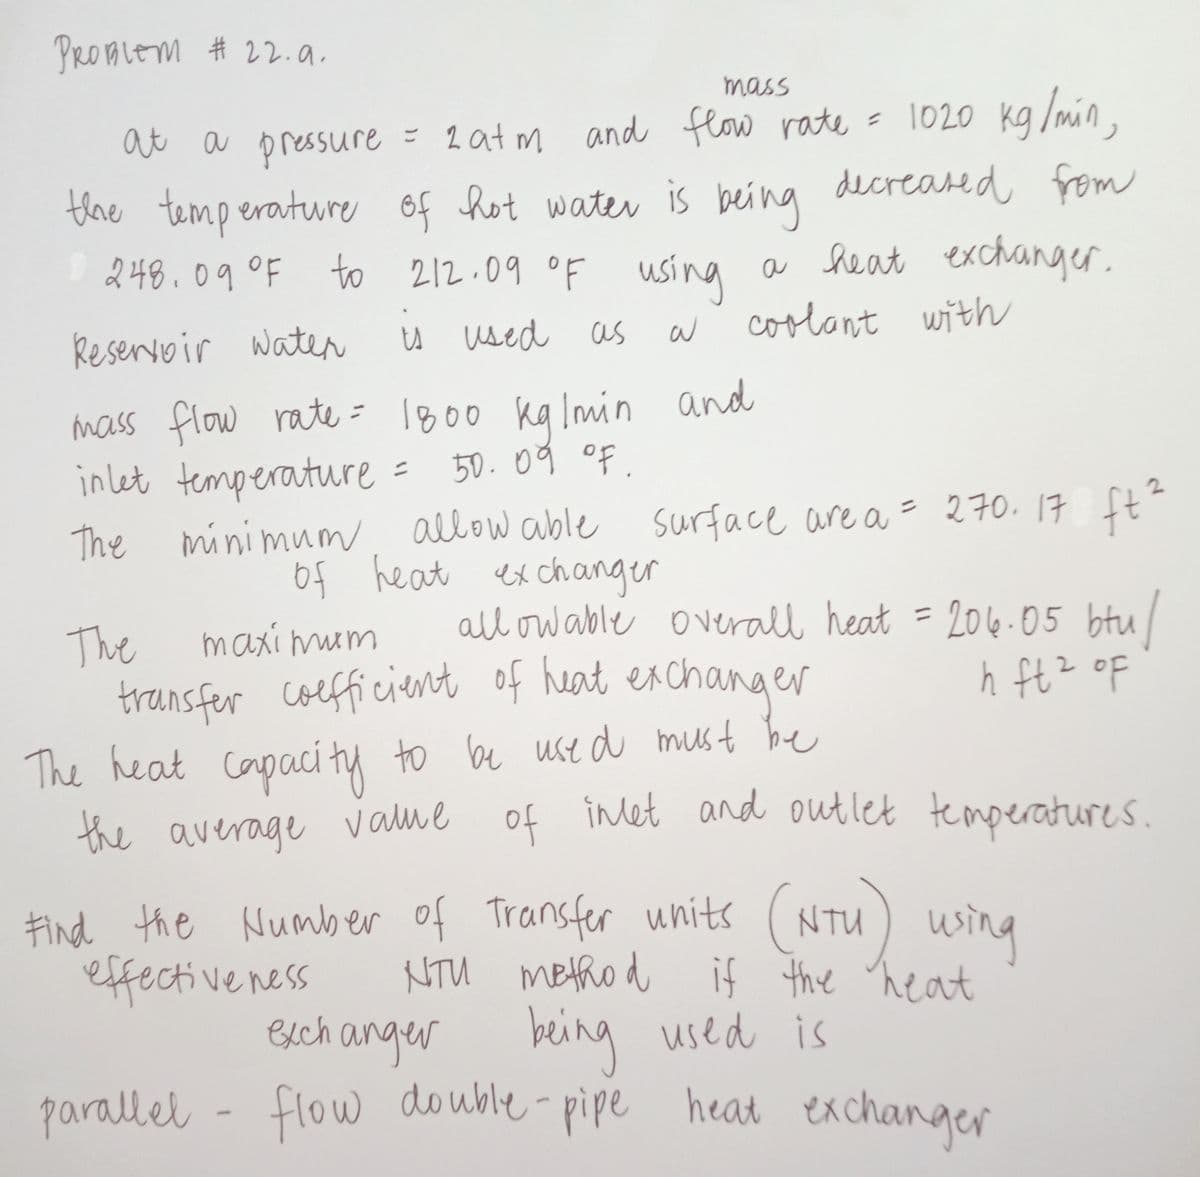 PROBLEM # 22.a.
mass
at a pressure = 2 atm and flow rate = 1020 kg/min,
the temperature of hot water is being decreased from
248.09 °F to 212.09 °F using a heat exchanger.
Reservoir water is used as a coolant with
mass flow rate = 1800 kg/min and
inlet temperature = 50.09 °F.
The minimum allowable surface area = 270.17 ft²
of heat exchanger
The maximum allowable overall heat = 206.05 btu/
transfer coefficient of heat exchanger h ft² °F
The heat capacity to be used must be
the average value of inlet and outlet temperatures.
Find the Number of Transfer units (NTU) using
effectiveness NTU method if the heat
exchanger being used is
parallel - flow double-pipe heat exchanger